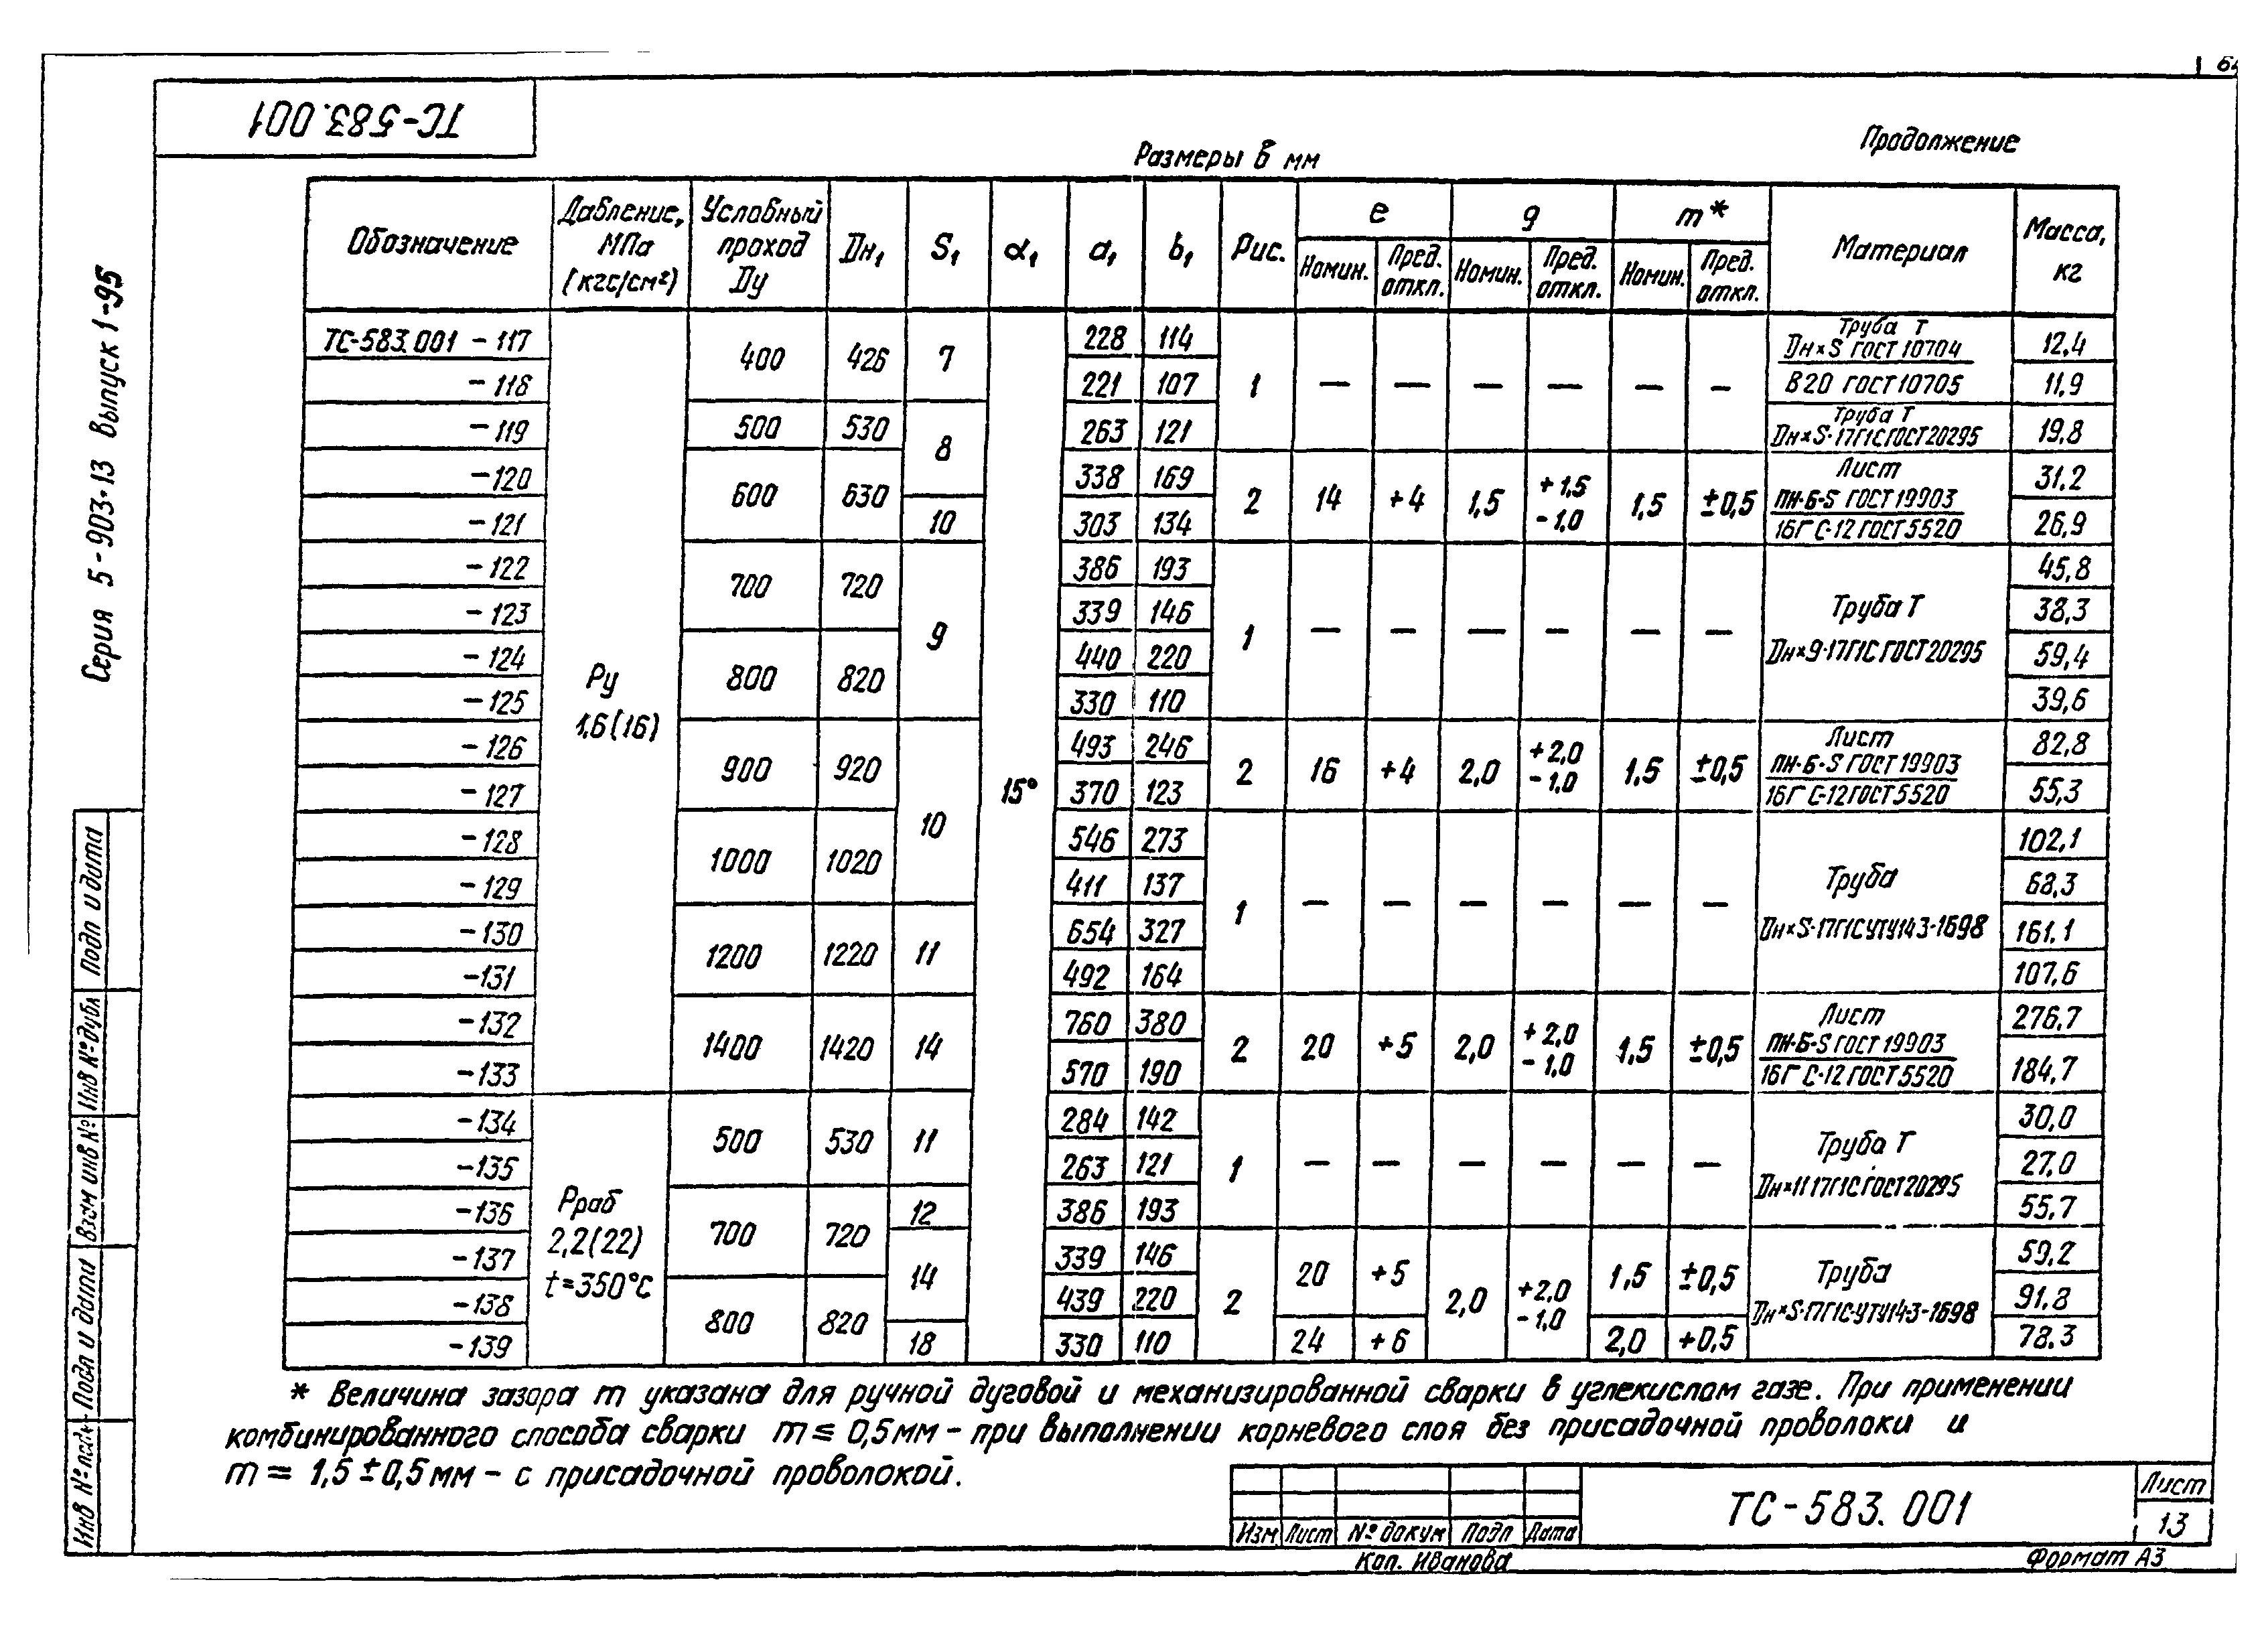 ТС-583.001
Продолжение
Размеры в мм
Обозначение | Давление, МПа (кгс/см²) | Условный проход Dу | Dн₁ | S₁ | α₁ | a₁ | b₁ | Рис. | e Номин. | e Пред. откл. | g Номин. | g Пред. откл. | m* Номин. | m* Пред. откл. | Материал | Масса, кг
ТС-583.001 - 117 | Ру 1,6(16) | 400 | 426 | 7 | 15° | 228 | 114 | 1 | — | — | — | — | — | — | Труба Т Dн×S ГОСТ 10704 / В20 ГОСТ 10705 | 12,4
- 118 | 221 | 107 | 11,9
- 119 | 500 | 530 | 8 | 263 | 121 | Труба Т Dн×S-17Г1С ГОСТ 20295 | 19,8
- 120 | 600 | 630 | 338 | 169 | 2 | 14 | +4 | 1,5 | +1,5 -1,0 | 1,5 | ±0,5 | Лист ПН-Б-S ГОСТ 19903 / 16ГС-12 ГОСТ 5520 | 31,2
- 121 | 10 | 303 | 134 | 26,9
- 122 | 700 | 720 | 9 | 386 | 193 | 1 | — | — | — | — | — | — | Труба Т Dн×9-17Г1С ГОСТ 20295 | 45,8
- 123 | 339 | 146 | 38,3
- 124 | 800 | 820 | 440 | 220 | 59,4
- 125 | 330 | 110 | 39,6
- 126 | 900 | 920 | 10 | 493 | 246 | 2 | 16 | +4 | 2,0 | +2,0 -1,0 | 1,5 | ±0,5 | Лист ПН-Б-S ГОСТ 19903 / 16ГС-12 ГОСТ 5520 | 82,8
- 127 | 370 | 123 | 55,3
- 128 | 1000 | 1020 | 546 | 273 | 1 | — | — | — | — | — | — | Труба Dн×S-17Г1СУ ТУ14-3-1698 | 102,1
- 129 | 411 | 137 | 68,3
- 130 | 1200 | 1220 | 11 | 654 | 327 | 161.1
- 131 | 492 | 164 | 107,6
- 132 | 1400 | 1420 | 14 | 760 | 380 | 2 | 20 | +5 | 2,0 | +2,0 -1,0 | 1,5 | ±0,5 | Лист ПН-Б-S ГОСТ 19903 / 16ГС-12 ГОСТ 5520 | 276,7
- 133 | 570 | 190 | 184,7
- 134 | Рраб 2,2(22) t=350°С | 500 | 530 | 11 | 284 | 142 | 1 | — | — | — | — | — | — | Труба Т Dн×11 17Г1С ГОСТ 20295 | 30,0
- 135 | 263 | 121 | 27,0
- 136 | 700 | 720 | 12 | 386 | 193 | 55,7
- 137 | 14 | 339 | 146 | 2 | 20 | +5 | 2,0 | +2,0 -1,0 | 1,5 | ±0,5 | Труба Dн×S-17Г1С-У ТУ14-3-1698 | 59,2
- 138 | 800 | 820 | 439 | 220 | 91.8
- 139 | 18 | 330 | 110 | 24 | +6 | 2,0 | +0,5 | 78.3
* Величина зазора m указана для ручной дуговой и механизированной сварки в углекислом газе. При применении
комбинированного способа сварки m ≤ 0,5мм - при выполнении корневого слоя без присадочной проволоки и
m = 1,5 ±0,5мм - с присадочной проволокой.
Серия 5-903-13 Выпуск 1-95
Подп и дата
Инв №дубл
Взам инв №
Подп и дата
Инв №подл
Изм Лист № докум Подп Дата
ТС-583.001
Лист
13
Коп. Иванова
Формат А3